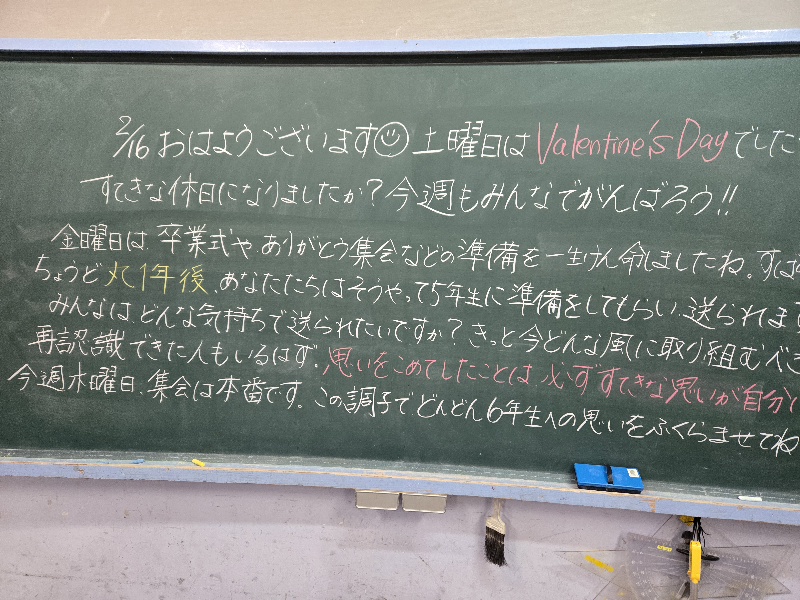 2/16 おはようございます☺ 土曜日はValentine's Dayでした
すてきな休日になりましたか?今週もみんなでがんばろう!!
金曜日は、卒業式や、ありがとう集会などの準備を一生けん命しましたね。すば
ちょうど 1年後、あなたたちはそうやって5年生に準備をしてもらい、送られます
みんなは、どんな気持ちで送られたいですか?きっと今どんな風に取り組むべき
再認識できた人もいるはず。思いをこめてしたことは、必ずすてきな思いが自分に
今週木曜日、集会は本番です。この調子でどんどん6年生への思いをふくらませてね